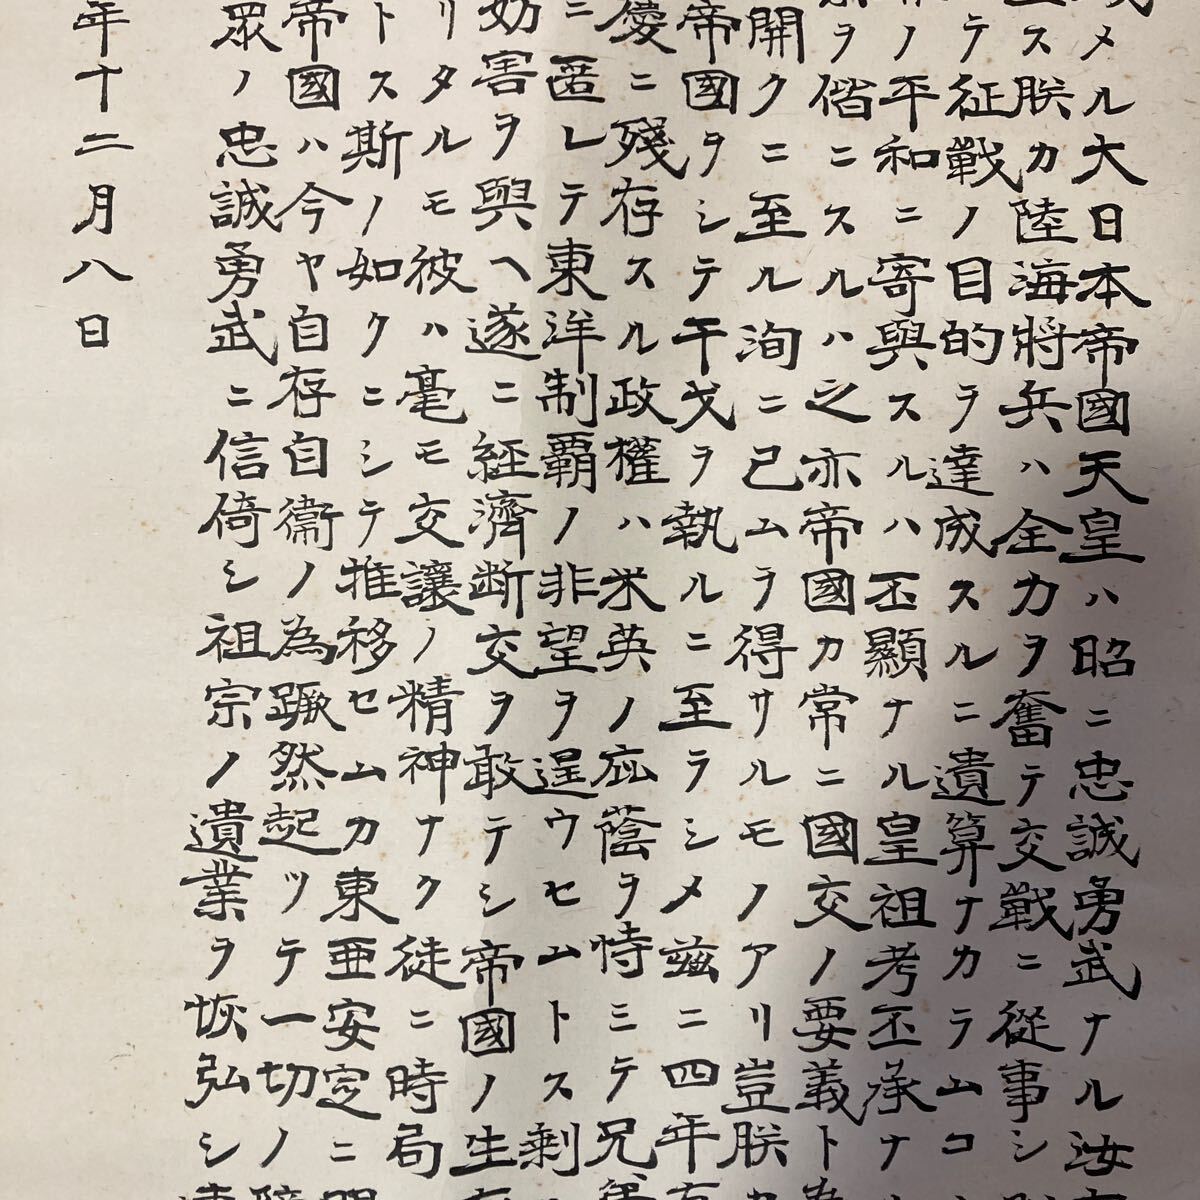 メル大日本帝國天皇ハ昭ニ忠誠勇武ナル汝
ス朕カ陸海將兵ハ全力ヲ奮テ交戰ニ從事シ
テ征戰ノ目的ヲ達成スルニ遺算ナカラムコ
ノ平和ニ寄與スルハ丕顯ナル皇祖考丕承ナ
ヲ偕ニスルハ之亦帝國カ常ニ國交ノ要義ト
開クニ至ル洵ニ已ムヲ得サルモノアリ豈朕
帝國ヲシテ干戈ヲ執ルニ至ラシメ茲ニ四年有
慶ニ殘存スル政權ハ米英ノ庇蔭ヲ恃ミテ兄
ニ匿レテ東洋制覇ノ非望ヲ逞ウセムトス剰
妨害ヲ與ヘ遂ニ経濟断交ヲ敢テシ帝國ノ生
リタルモ彼ハ毫モ交讓ノ精神ナク徒ニ時局
トス斯ノ如クニシテ推移セムカ東亜安定ニ
帝國ハ今ヤ自存自衞ノ為蹶然起ッテ一切ノ
眾ノ忠誠勇武ニ信倚シ祖宗ノ遺業ヲ恢弘シ
年十二月八日